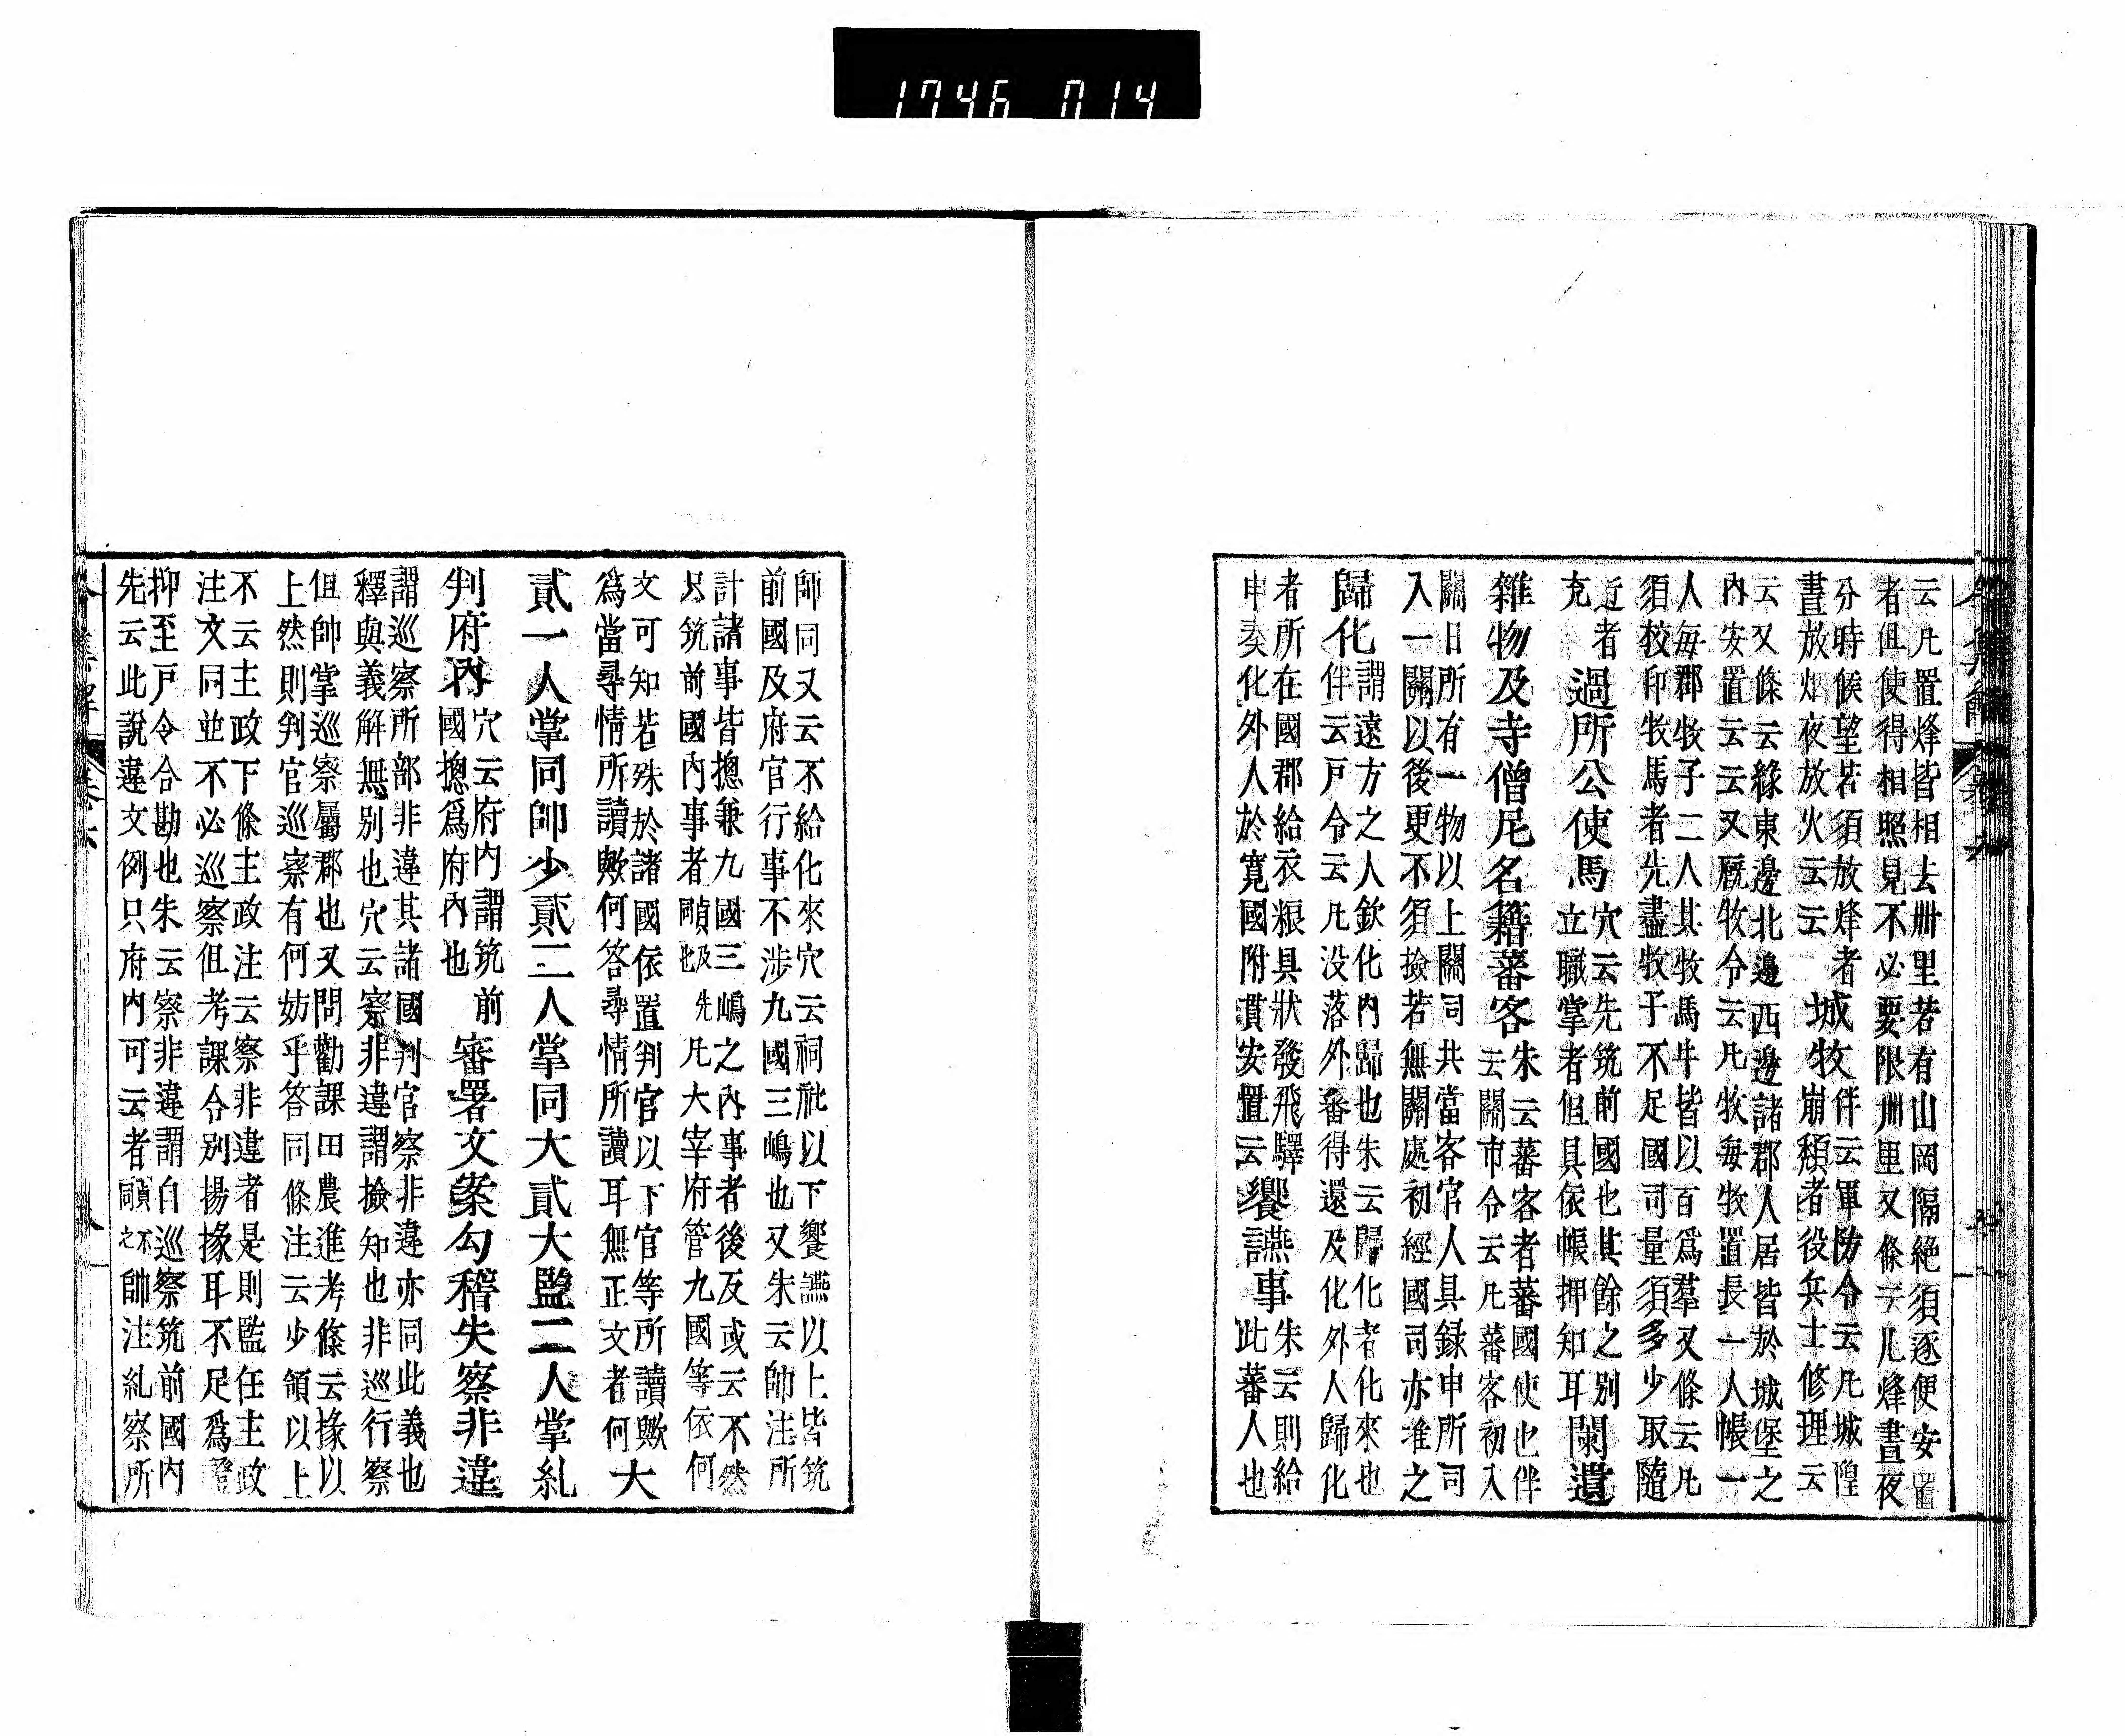 1746 014
云凡置烽皆相去卌里若有山岡隔絶須逐便安置
者但使得相照見不必要限卅里又條云凡烽晝夜
分時候望若須放烽者
晝放烟夜放火云云
城牧
伴云軍防令云凡城隍
崩頽者役兵士修理云
云又條云緣東邊北邊西邊諸郡人居皆於城堡之
內安置云云又厩牧令云凡牧每牧置長一人帳一
人每郡牧子二人其牧馬牛皆以百爲羣又條云凡
須校印牧馬者先盡牧子不足國司量須多少取隨
近者
充
過所公使馬
穴云先筑前國也其餘之別
立職掌者但具依帳押知耳
闌遺
雜物及寺僧尼名籍蕃客
朱云蕃客者蕃國使也伴
云關市令云凡蕃客初入
關日所有一物以上關司共當客官人具録申所司
入一關以後更不須撿若無關處初經國司亦准之
歸化
謂遠方之人欽化內歸也朱云歸化者化來也
伴云戸令云凡没落外蕃得還及化外人歸化
者所在國郡給衣粮具狀發飛驛
申奏化外人於寛國附貫安置云
饗讌事
朱云則給
此蕃人也
師同又云不給化來穴云祠社以下饗讌以上皆筑
前國及府官行事不涉九國三嶋也又朱云帥注所
計諸事皆摠兼九國三嶋之內事者後反或云不然
只筑前國內事者
凡大宰府管九國等依何
文可知若殊於諸國依置判官以下官等所讀歟
爲當尋情所讀歟何答尋情所讀耳無正文者何
大
貳一人掌同帥少貳二人掌同大貳大監二人掌糺
判府內
穴云府内謂筑前
國摠爲府內也
審署文案勾稽失察非違
謂巡察所部非違其諸國判官察非違亦同此義也
釋與義解無別也穴云察非違謂撿知也非巡行察
但帥掌巡察屬郡也又問勸課田農進考條云掾以
上然則判官巡察有何妨乎答同條注云少領以上
不云主政下條主政注云察非違者是則監任主政
注文同並不必巡察但考課令別揚掾耳不足爲證
抑至戸令合勘也朱云察非違謂自巡察筑前國內
先云此說違文例只府內可云者
帥注糺察所